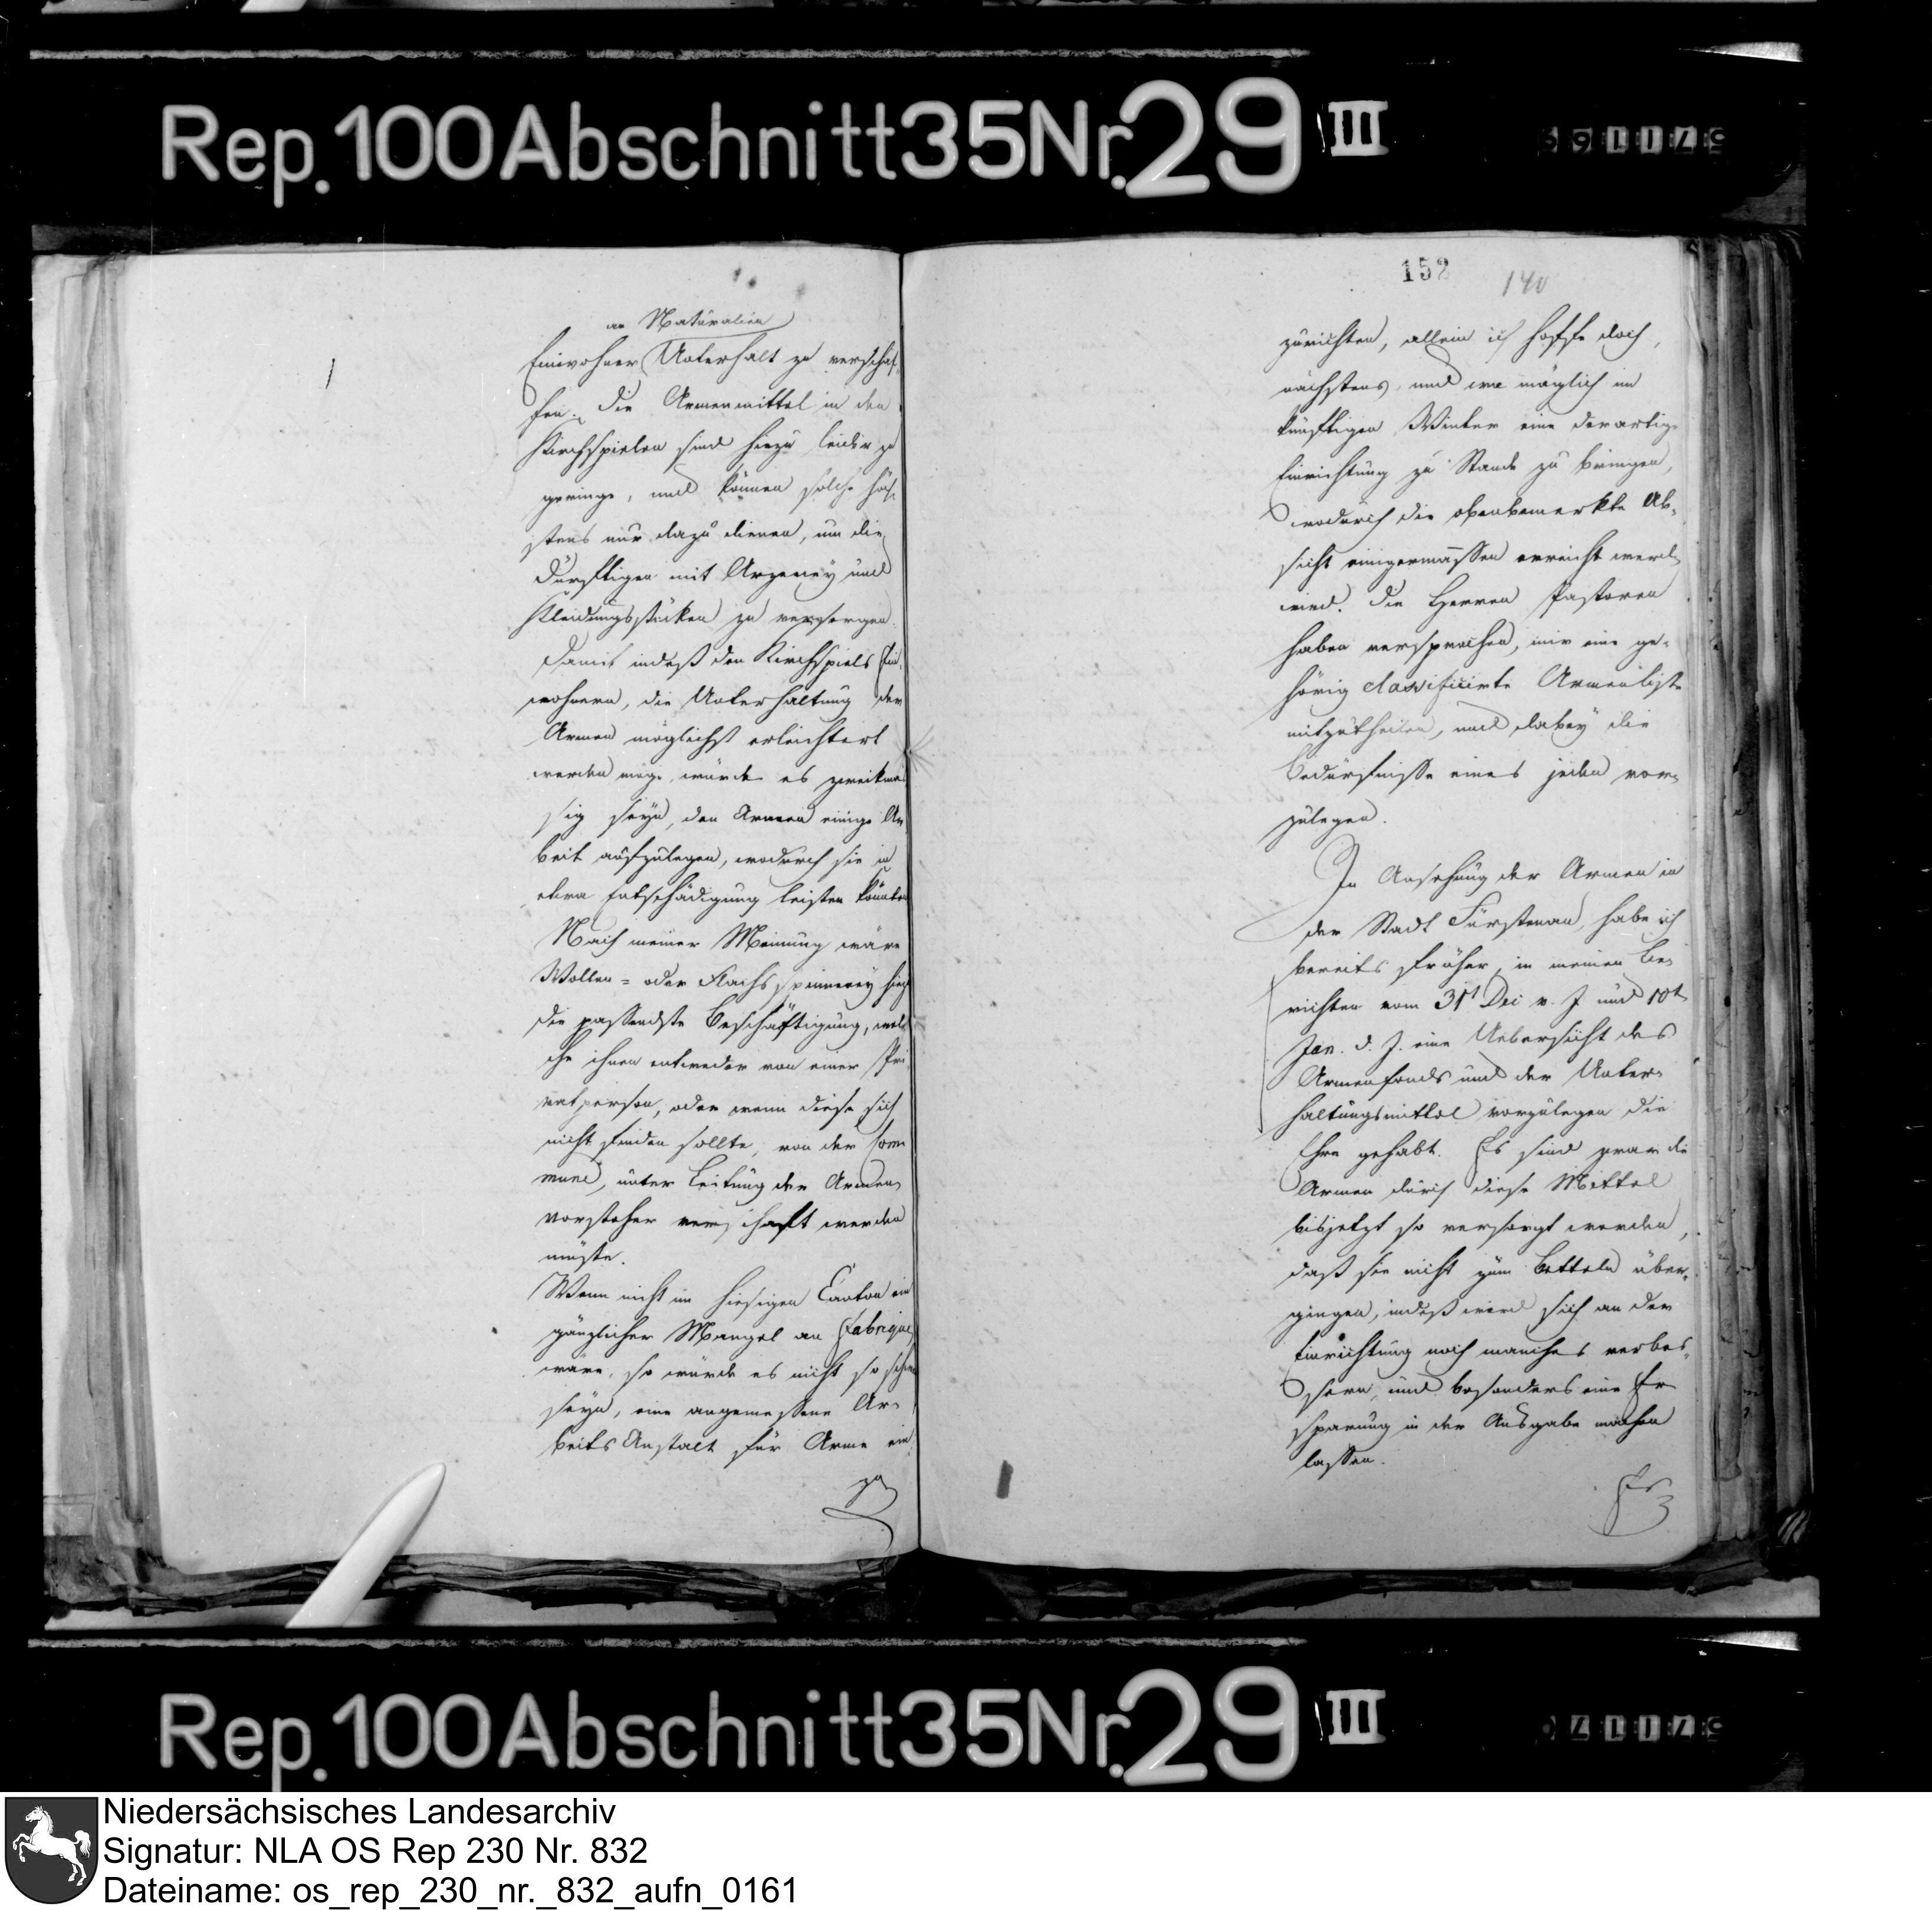 Rep. 100 Abschnitt 35 Nr. 29 III
an Naturalien
Einwohner Unterhalt zu verschaf„
fen. Die Armenmittel in den
Kirchspielen sind hiezu leider zu
geringe, und können solche höch„
stens nur dazu dienen, um die
Dürftigen mit Arzeney und
Kleidungsstücken zu versorgen.
Damit indeß den Kirchspiels Ein„
wohnern, die Unterhaltung der
Armen möglichst erleichtert
werden möge, würde es zweckmä
ßig seyn, den Armen einige Ar
beit aufzulegen, wodurch sie in
etwa Entschädigung leisten könnten
Nach meiner Meinung wäre
Wollen= oder Flachsspinnerey hiezu
die passendste Beschäftigung, wel
che ihnen entweder von einer Pri
vatperson, oder wenn diese sich
nicht finden sollte, von der Com
mune, unter Leitung der Armen
vorsteher verschafft werden
müste.
Wenn nicht im hiesigen Canton ein
gänzlicher Mangel an Fabriquen
wäre, so würde es nicht so schwer
seyn, eine angemessene Ar„
beits Anstalt für Arme ein„
zu
152
140
zurichten, allein ich hoffe doch,
nächstens, und wo möglich im
künftigen Winter eine derartige
Einrichtung zu Stande zu bringen,
wodurch die obenbemerkte Ab„
sicht einigermassen erreicht werden
wird. Die Herren Pastoren
haben versprochen, mir eine ge„
hörig classificirte Armenliste
mitzutheilen, und dabey die
Bedürfnisse eines jeden vor„
zulegen.
In Ansehung der Armen in
der Stadt Fürstenau, habe ich
bereits früher, in meinen Be„
richten vom 31t Dec v. J. und 10t
Jan. d. J. eine Uebersicht des
Armenfonds und der Unter„
haltungsmittel vorzulegen die
Ehre gehabt. Es sind zwar die
Armen durch diese Mittel
bisjetzt so versorgt worden,
daß sie nicht zum Betteln über„
gingen, indeß wird sich an der
Einrichtung noch manches verbes„
sern, und besonders eine Er
sparung in der Ausgabe machen
lassen.
Es
Rep. 100 Abschnitt 35 Nr. 29 III
Niedersächsisches Landesarchiv
Signatur: NLA OS Rep 230 Nr. 832
Dateiname: os_rep_230_nr._832_aufn_0161